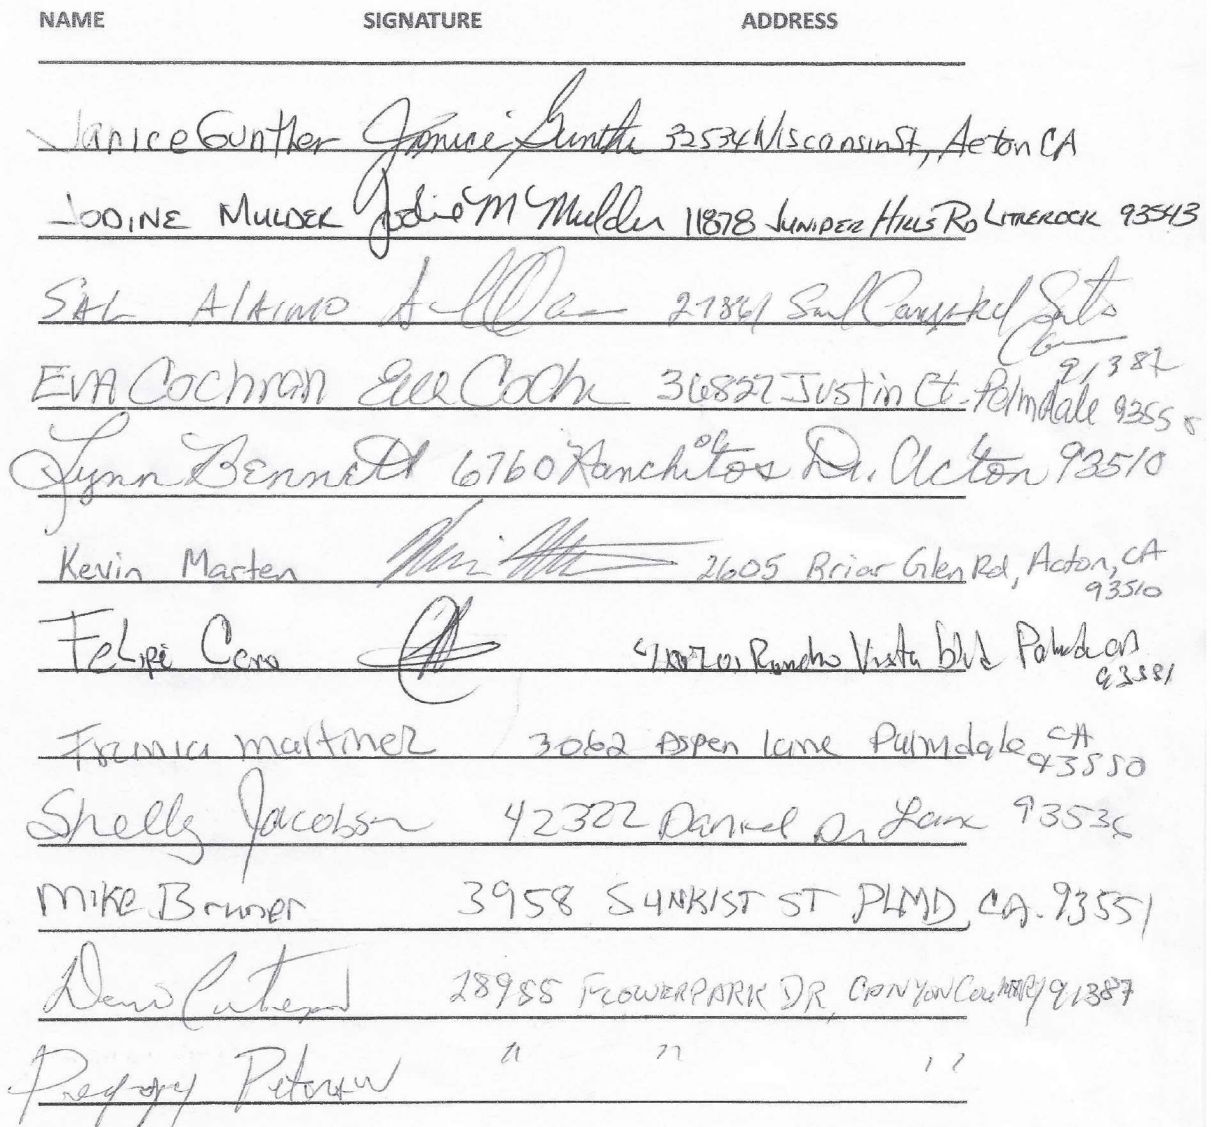 NAME SIGNATURE ADDRESS
Janice Gunther Janice Gunth 32534 Wisconsin St, Acton CA
JODINE MULDER Jodine M Mulder 11878 JUNIPER HILLS RD LITTLEROCK 93543
SAL AlAIMO 27861 Canyon
91387
EVA Cochran Eva Coch 36827 Justin Ct. Palmdale 9355
Lynn Bennett 6760 Ranchitos Dr. Acton 93510
Kevin Marten 2605 Briar Glen Rd, Acton, CA
93510
Felipe Rancho Vista blvd
martinez 3062 Aspen lane Palmdale CA
93550
Shelly Jacobson 42322 Daniel Dr Lanc 93536
Mike 3958 SUNKIST ST PLMD, CA. 93551
28985 FLOWERPARK DR, CANYON COUNTRY 91387
Gregory " " "